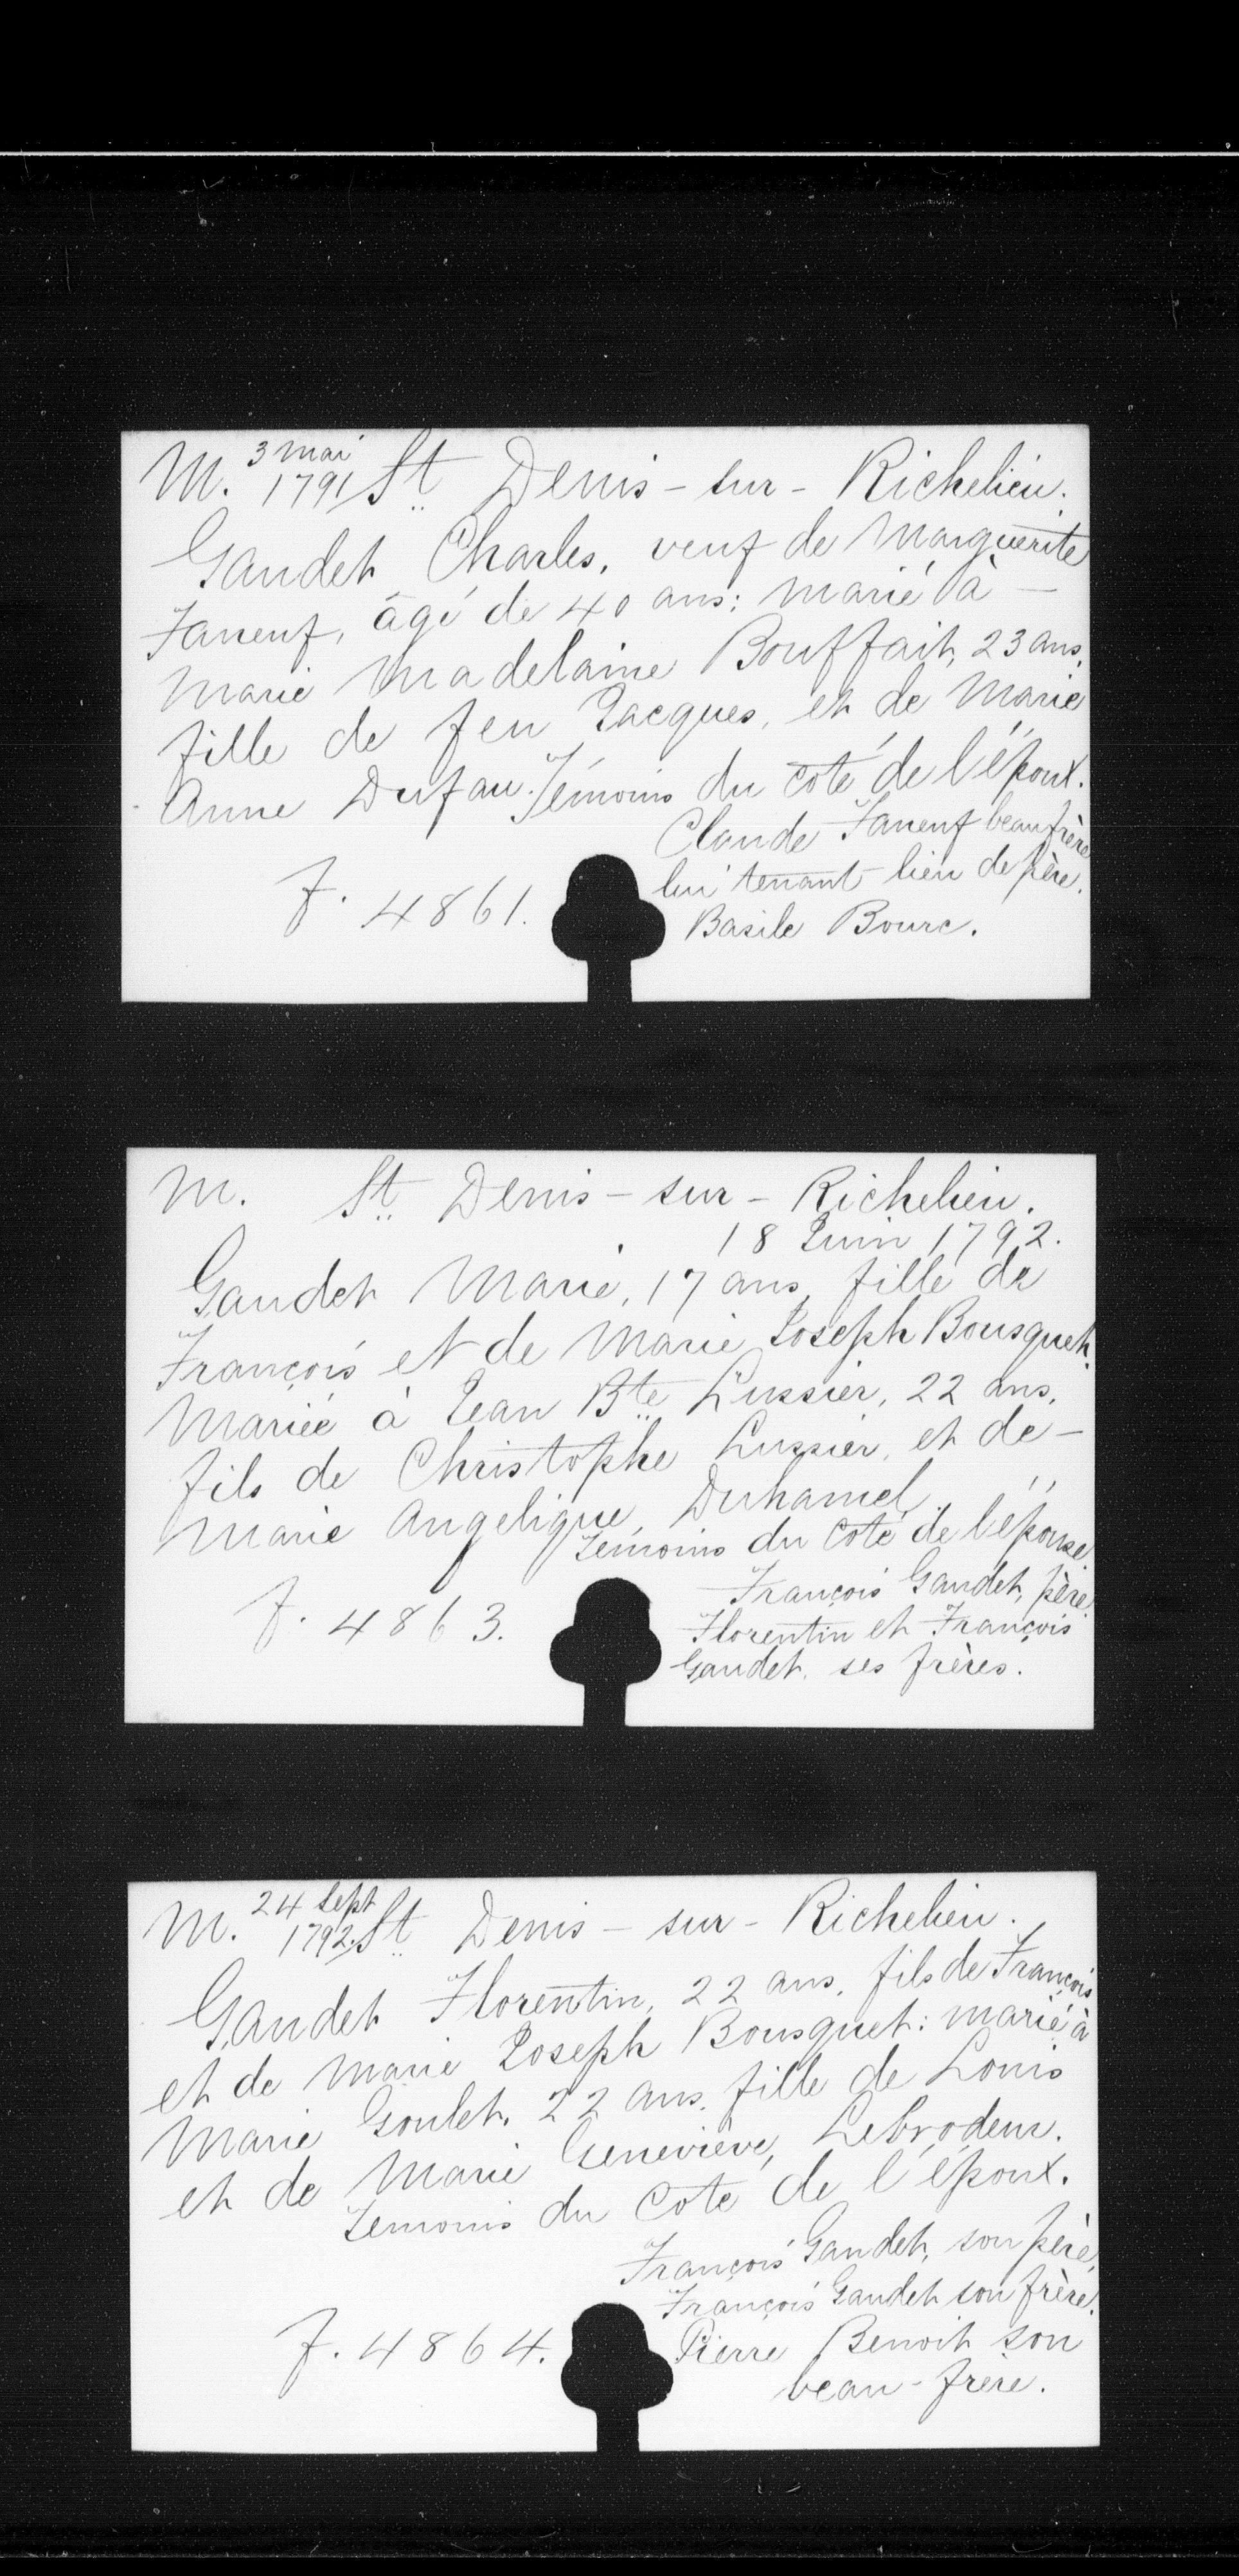 M. 3 mai
1791 St Denis - sur - Richelieu.
Gaudet Charles, veuf de Marguerite
Faneuf, âgé de 40 ans: marié à -
Marie Madelaine Bouffait, 23 ans,
fille de feu Jacques, et de Marie
Anne Dufau. Témoins du coté de l'époux.
Claude Faneuf beaufrère
lui tenant lieu de père.
Basile Bourc.
F. 4861.
M. St Denis - sur - Richelieu.
18 Juin 1792.
Gaudet Marie, 17 ans, fille de
François et de Marie Joseph Bousquet.
Mariée à Jean Bte Lussier, 22 ans,
fils de Christophe Lussier, et de -
Marie Angelique Duhamel.
Temoins du coté de l'épouse
François Gaudet, père
Florentin et François
Gaudet, ses frères.
F. 4863.
M. 24 Sept
1792. St Denis - sur - Richelieu.
Gaudet Florentin, 22 ans, fils de François
et de Marie Joseph Bousquet: marié à
Marie Goulet, 22 ans, fille de Louis
et de Marie Geneviève, Lebrodeur.
Temoins du Coté de l'époux.
François Gaudet, son père,
François Gaudet son frère.
Pierre Benoit son
beau-frère.
F. 4864.